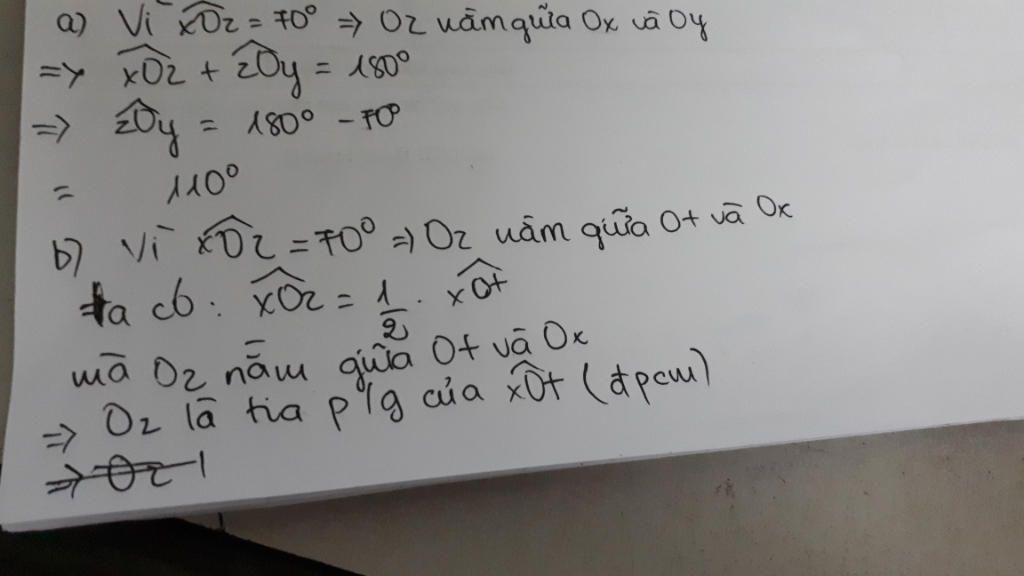 a) Vì xOz = 70° => Oz nằm giữa Ox và Oy
=> xOz + zOy = 180°
=> zOy = 180° - 70°
= 110°
b) Vì xOz = 70° => Oz nằm giữa Ot và Ox
ta có : xOz = 1/2 . xOt
mà Oz nằm giữa Ot và Ox
=> Oz là tia p/g của xOt (đpcm)
=> Oz l